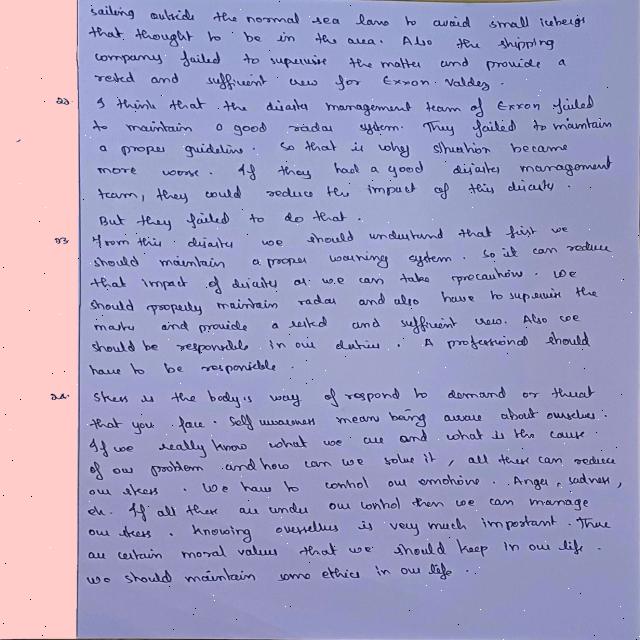 sailing outside the normal sea lane to avoid small icebergs
that thought to be in the area. Also the shipping
company failed to supervise the matter and provide a
rested and suffirent crew for Exxon Valdez.
22. I think that the disaster management team of Exxon failed
to maintain a good radar system. They failed to maintain
a proper guideline. So that is why situation became
more worse. If they had a good disaster management
team, they could reduce the impact of this disaster.
But they failed to do that.
23. From this disaster we should understand that first we
should maintain a proper warning system. So it can reduce
that impact of disaster as we can take precaution. We
should properly maintain radar and also have to supervise the
master and provide a rested and suffirent crew. Also we
should be responsible in our duties. A professional should
have to be responsible.
24. Stress is the body's way of respond to demand or threat
that you face. Self awareness mean being aware about ourselves.
If we really know what we are and what is the cause
of our problem and how can we solve it, all these can reduce
our stress. We have to control our emotions. Anger, sadness,
etc. If all these are under our control then we can manage
our stress. Knowing ourselves is very much important. There
are certain moral values that we should keep in our life.
We should maintain some ethics in our life..